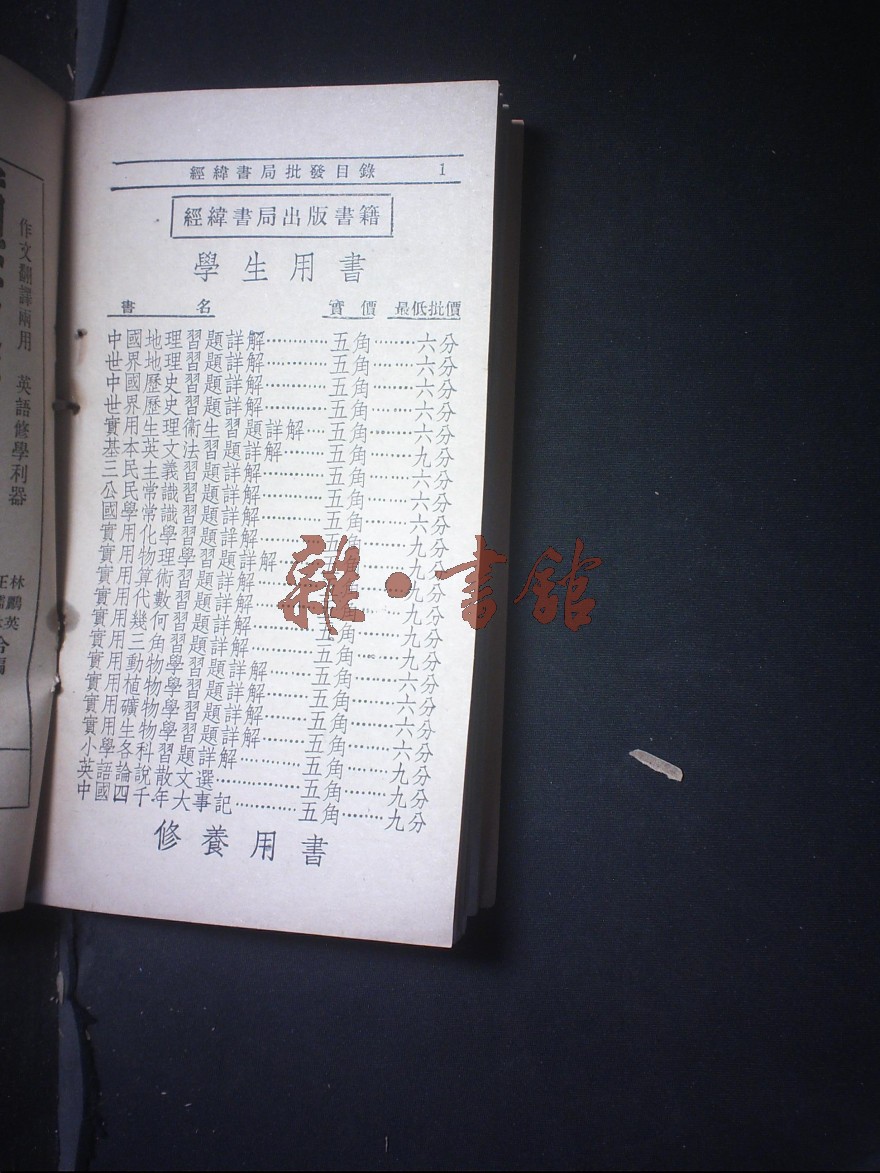 經緯書局批發目錄 1
經緯書局出版書籍
學生用書
書名 實價 最低批價
中國地理習題詳解…………五角………六分
世界地理習題詳解…………五角………六分
中國歷史習題詳解…………五角………六分
世界歷史習題詳解…………五角………六分
實用生理衛生習題詳解……五角………六分
基本英文法習題詳解………五角………九分
三民主義習題詳解…………五角………六分
公民常識習題詳解…………五角………六分
國學常識習題詳解…………五角………六分
實用化學習題詳解…………五角………九分
實用物理學習題詳解………五角………九分
實用算術習題詳解…………五角………九分
實用代數習題詳解…………五角………九分
實用幾何習題詳解…………五角………九分
實用三角習題詳解…………五角………九分
實用動物學習題詳解………五角………六分
實用植物學習題詳解………五角………六分
實用礦物學習題詳解………五角………六分
實用生物學習題詳解………五角………六分
小學各科習題詳解…………五角………九分
英語論說散文選……………五角………九分
中國四千年大事記…………五角………九分
修養用書
作文翻譯兩用 英語修學利器
雜·書館